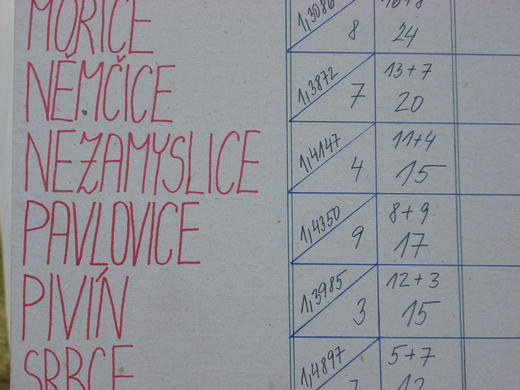 MOŘICE 1,3086 16+8
8 24
NĚMČICE 1,3872 13+7
7 20
NEZAMYSLICE 1,4147 11+4
4 15
PAVLOVICE 1,4350 8+9
9 17
PIVÍN 1,3985 12+3
3 15
SRBCE 1,4897 5+7
7 12